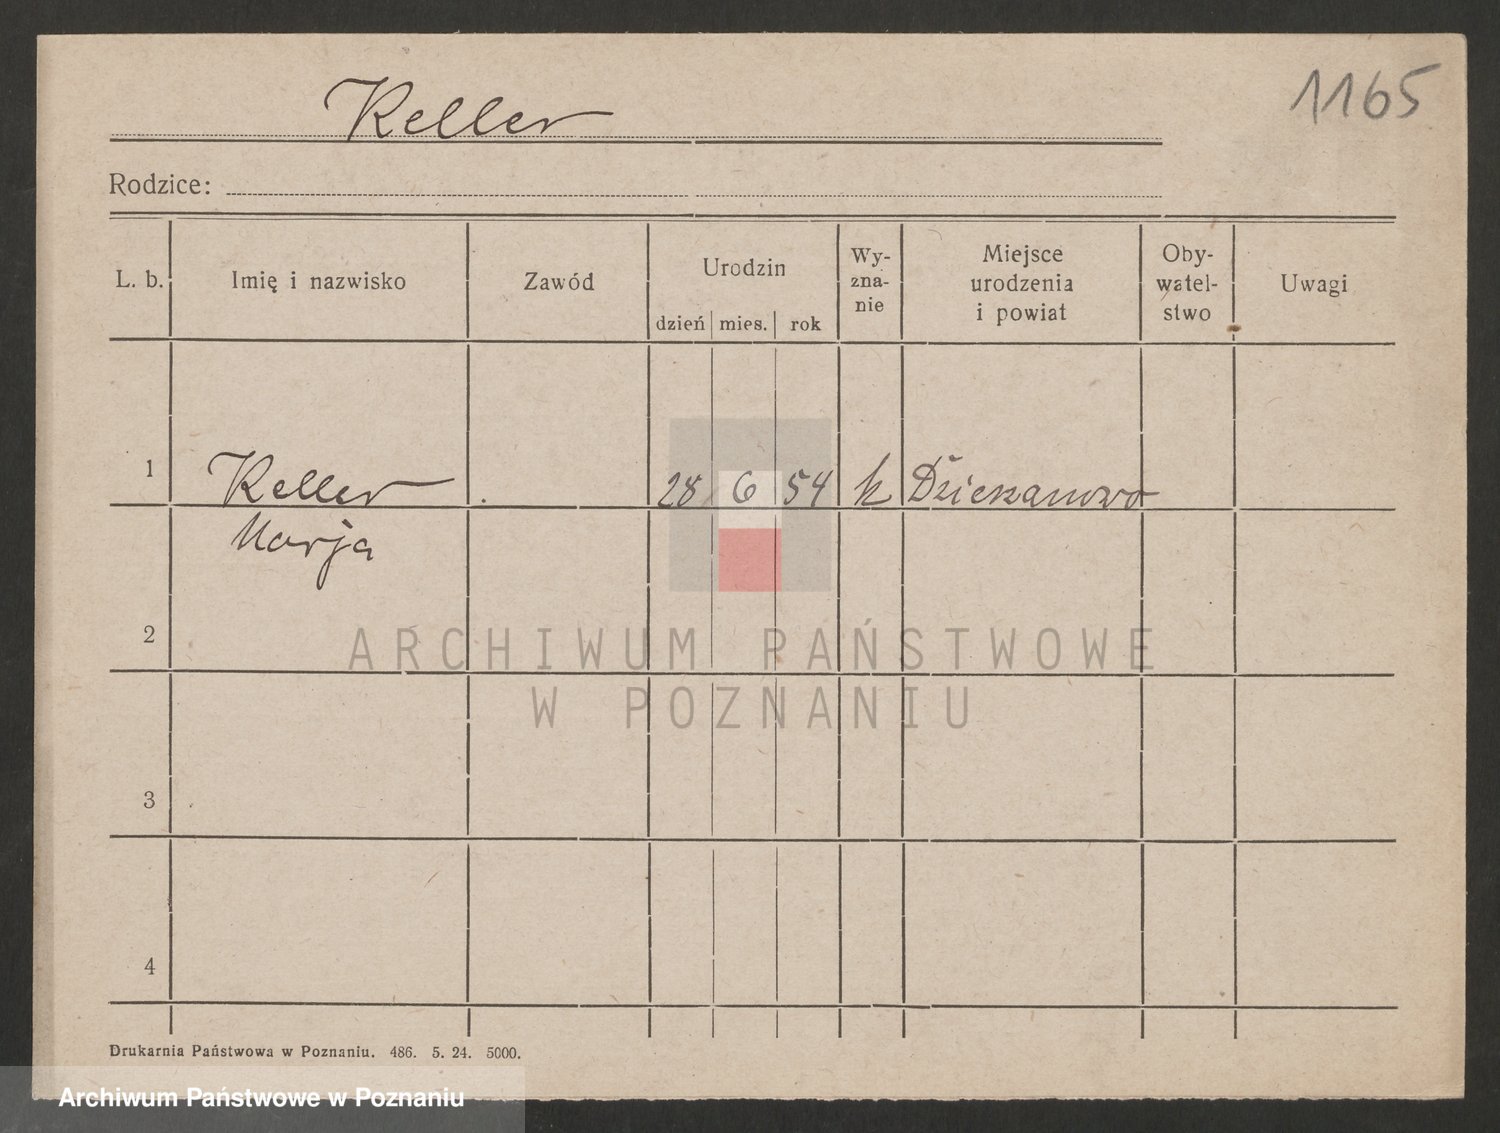 Keller
1165
Rodzice:
L. b.
Imię i nazwisko
Zawód
Urodzin
dzień mies. rok
Wy-
zna-
nie
Miejsce
urodzenia
i powiat
Oby-
watel-
stwo
Uwagi
1 Keller 28 6 54 k Dziekanowo
Marja
2
3
4
ARCHIWUM PAŃSTWOWE
W POZNANIU
Drukarnia Państwowa w Poznaniu. 486. 5. 24. 5000.
Archiwum Państwowe w Poznaniu